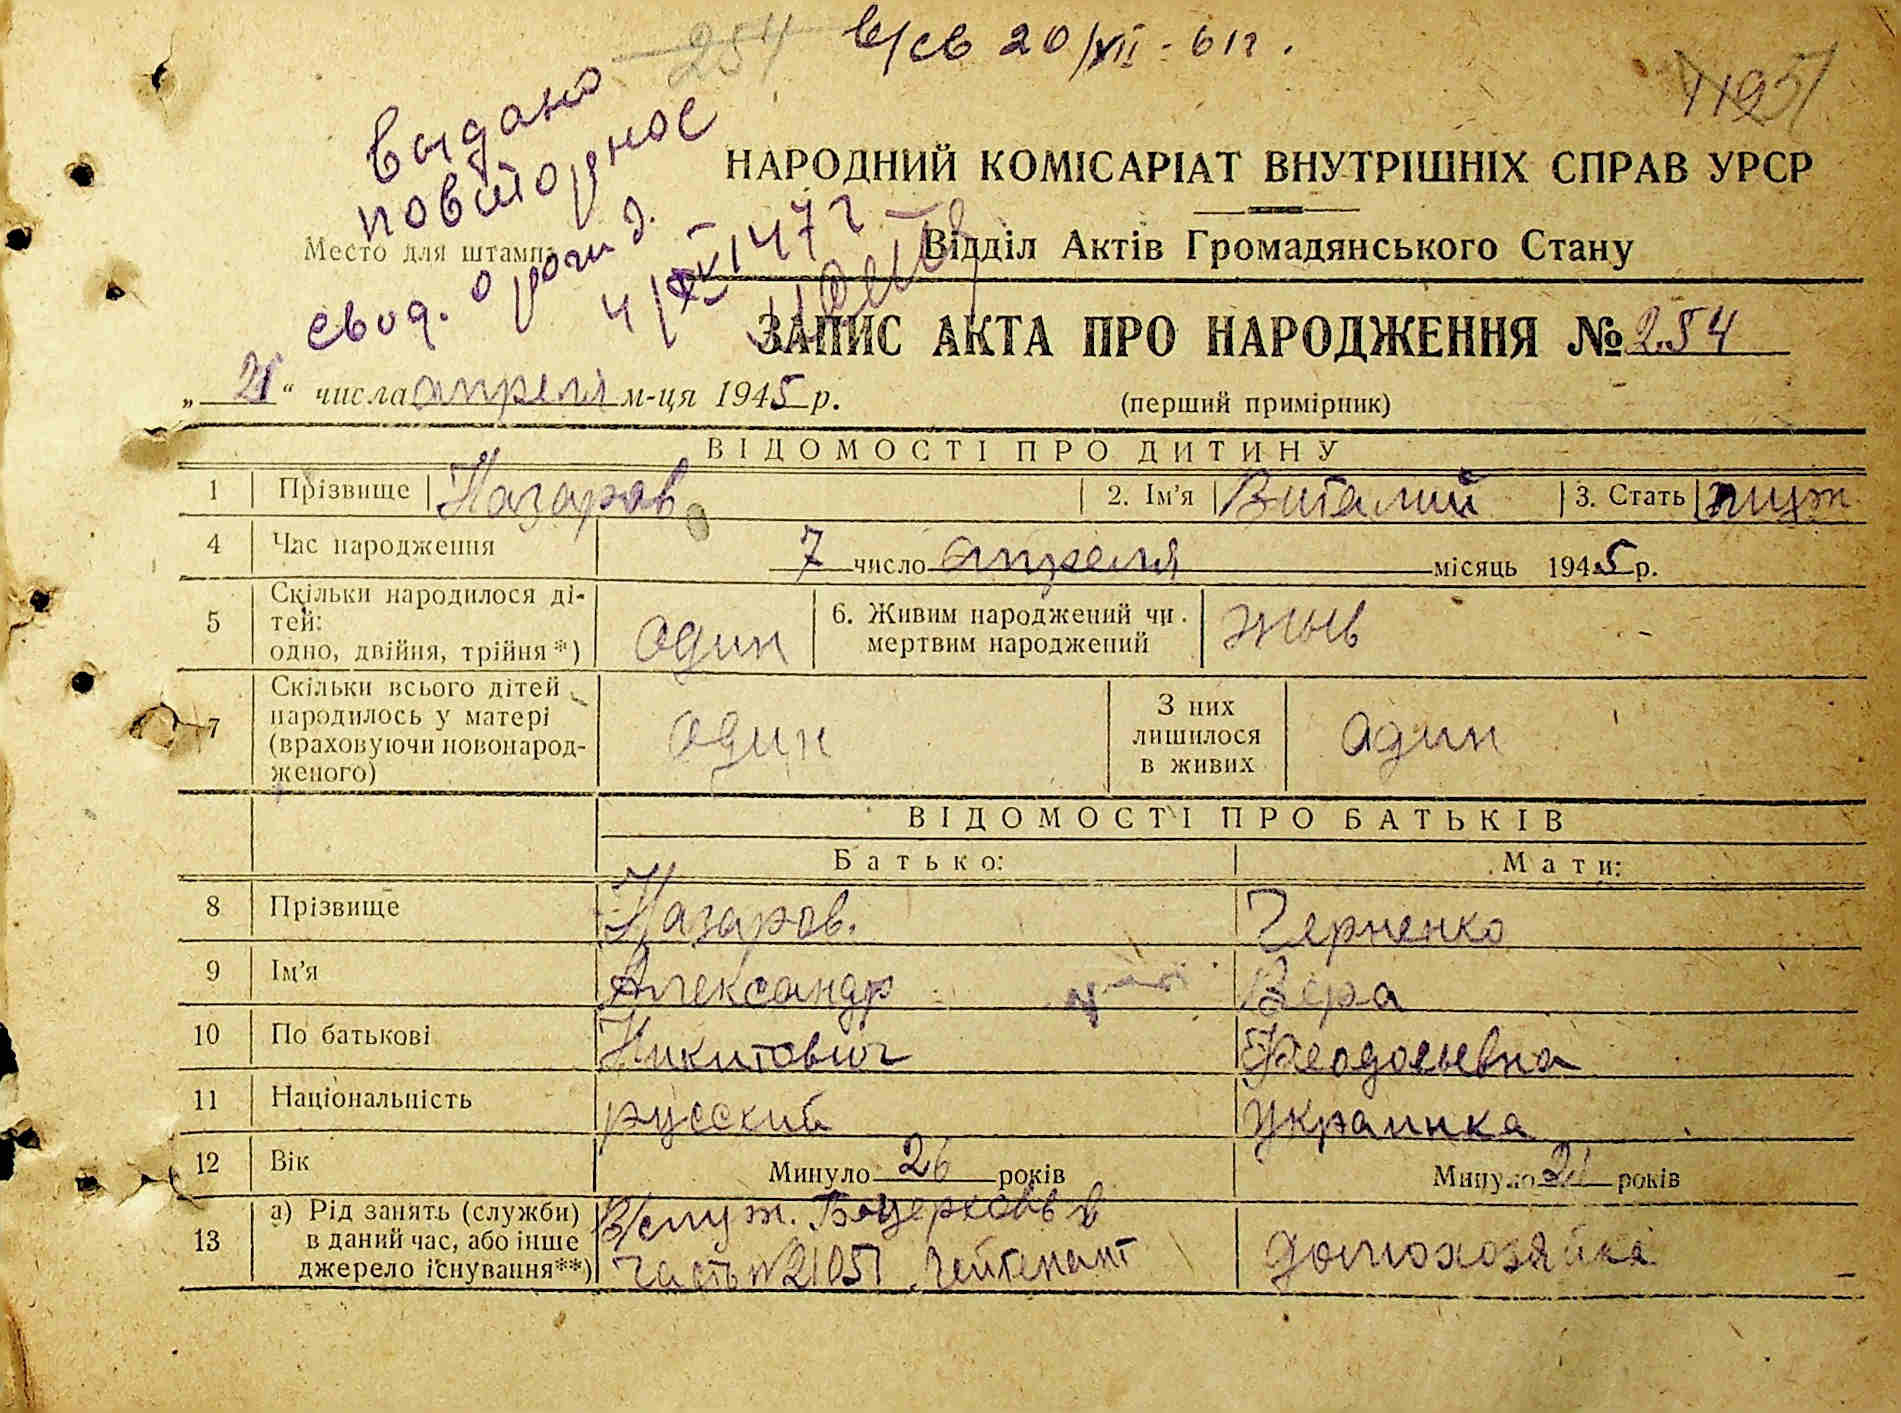 254 в/св 20/VII - 61г.
1195/
Выдано
повторное
свид. о рожд.
4/XI 147г
НАРОДНИЙ КОМІСАРІАТ ВНУТРІШНІХ СПРАВ УРСР
Место для штампа
Відділ Актів Громадянського Стану
ЗАПИС АКТА ПРО НАРОДЖЕННЯ № 254
„21“ числа апреля м-ця 1945 р.
(перший примірник)
ВІДОМОСТІ ПРО ДИТИНУ
1 Прізвище Назаров 2. Ім’я Виталий 3. Стать муж
4 Час народження 7 число апреля місяць 1945 р.
5 Скільки народилося ді-
тей:
одно, двійня, трійня*) один
6. Живим народжений чи
мертвим народжений жыв
7 Скільки всього дітей
народилось у матері
(враховуючи новонарод-
женого) один
З них
лишилося
в живих один
ВІДОМОСТІ ПРО БАТЬКІВ
Батько: Мати:
8 Прізвище Назаров. Черненко
9 Ім’я Александр Вера
10 По батькові Никитович Феодосьевна
11 Національність русский украинка
12 Вік Минуло 26 років Минуло років
13 а) Рід занять (служби)
в даний час, або інше
джерело існування**)
В/служ. Б-Церковь в
часть №21051 лейтенант
домохозяйка